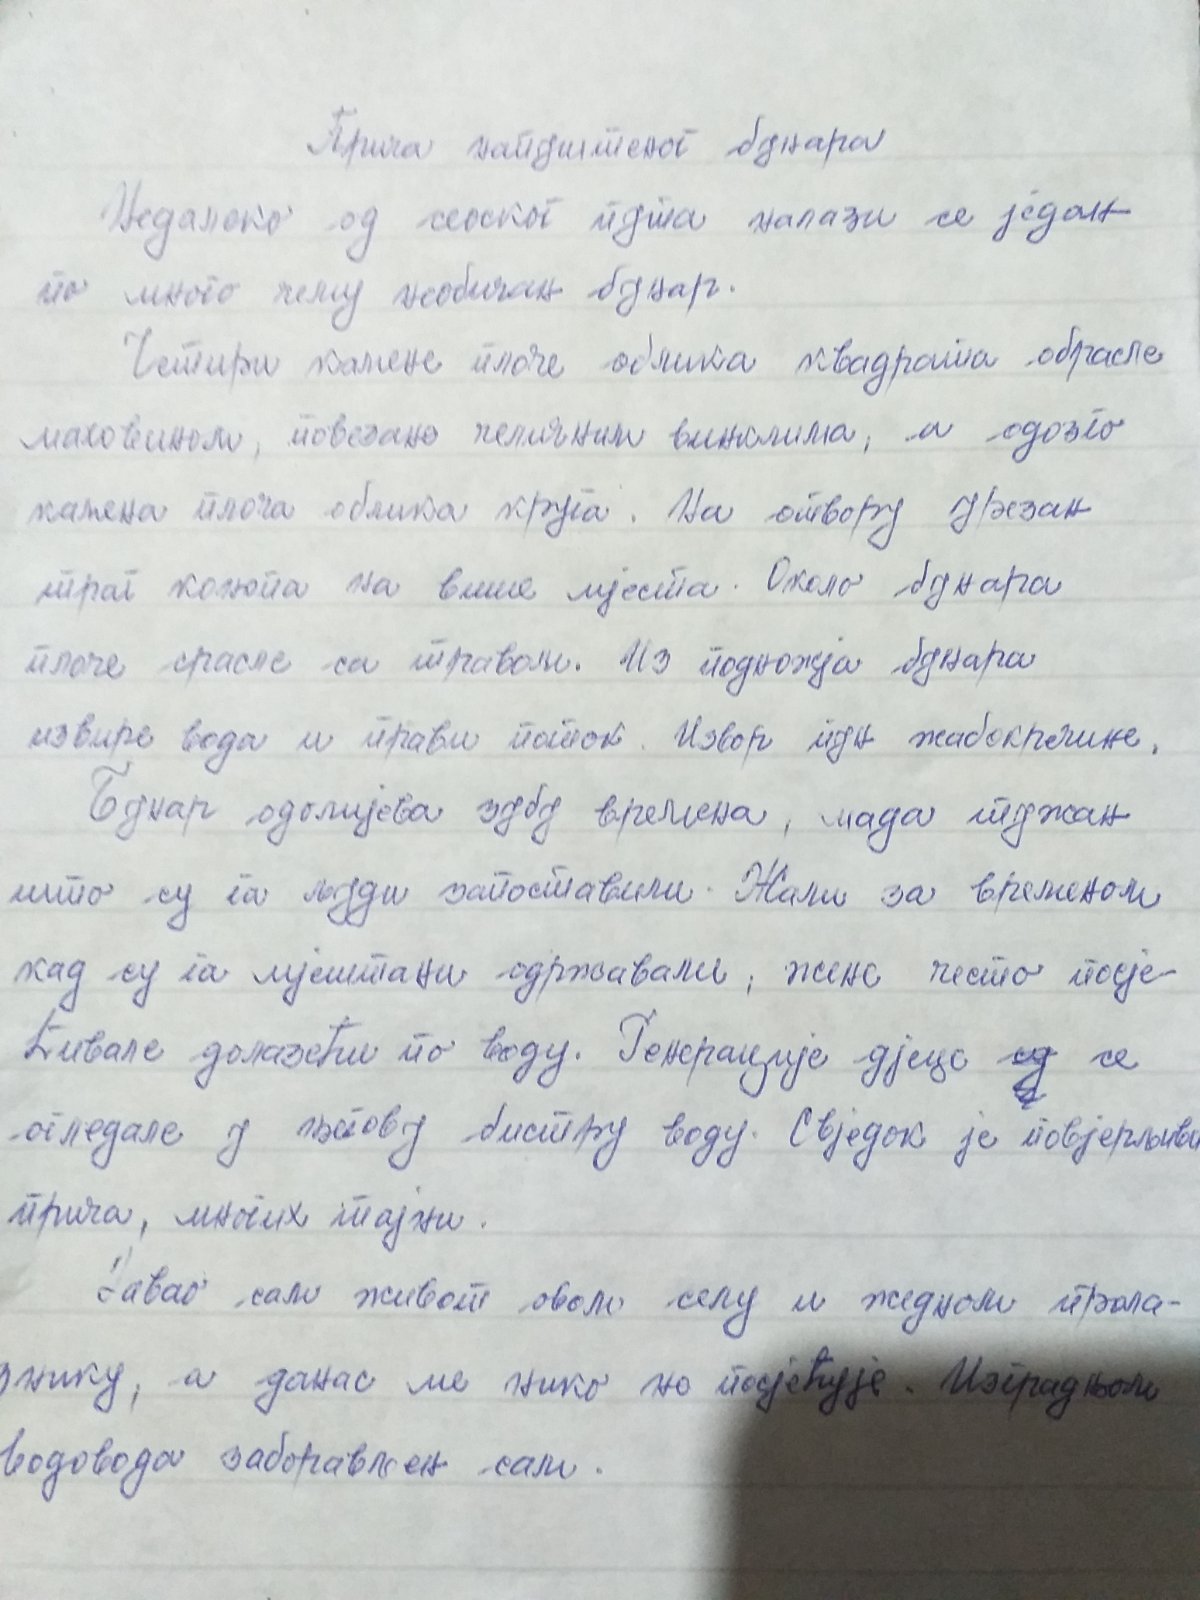 Прича напуштеног бунара
Недалеко од сеоског пута налази се један
по много чему необичан бунар.
Четири камене плоче облика квадрата обрасле
маховином, повезане челичним винклима, а одозго
камена плоча облика круга. На отвору урезан
траг конопа на више мјеста. Около бунара
плоче срасле са травом. Из подножја бунара
извире вода и прави поток. Извор пун жабокречине.
Бунар одолијева зубу времена, мада тужан
што су га људи запоставили. Жали за временом
кад су га мјештани одржавали, жене често посје-
ћивале долазећи по воду. Генерације дјеце се
огледале у његову бистру воду. Свједок је повјерљиви
прича, многих тајни.
Давао сам живот овом селу и жедном прола-
знику, а данас ме нико не посјећује. Изградњом
водовода заборављен сам.